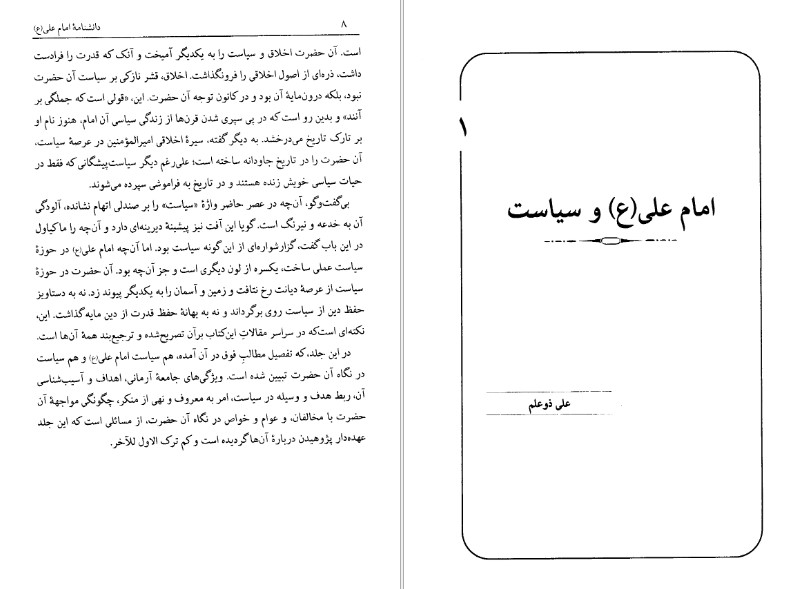 ۸
دانشنامهٔ امام علی(ع)
است. آن حضرت اخلاق و سیاست را به یکدیگر آمیخت و آنک که قدرت را فرادست
داشت، ذره‌ای از اصول اخلاقی را فرونگذاشت. اخلاق، قشر نازکی بر سیاست آن حضرت
نبود، بلکه درون‌مایهٔ آن بود و در کانون توجه آن حضرت. این، «قولی است که جملگی بر
آنند» و بدین رو است که در پی سپری شدن قرن‌ها از زندگی سیاسی آن امام، هنوز نام او
بر تارک تاریخ می‌درخشد. به دیگر گفته، سیرهٔ اخلاقی امیرالمؤمنین در عرصهٔ سیاست،
آن حضرت را در تاریخ جاودانه ساخته است؛ علی‌رغم دیگر سیاست‌پیشگانی که فقط در
حیات سیاسی خویش زنده هستند و در تاریخ به فراموشی سپرده می‌شوند.
بی‌گفت‌وگو، آن‌چه در عصر حاضر واژهٔ «سیاست» را بر صندلی اتهام نشانده، آلودگی
آن به خدعه و نیرنگ است. گویا این آفت نیز پیشینهٔ دیرینه‌ای دارد و آن‌چه را ماکیاول
در این باب گفت، گزارشواره‌ای از این گونه سیاست بود. اما آن‌چه امام علی(ع) در حوزهٔ
سیاست عملی ساخت، یکسره از لون دیگری است و جز آن‌چه بود. آن حضرت در حوزهٔ
سیاست از عرصهٔ دیانت رخ نتافت و زمین و آسمان را به یکدیگر پیوند زد. نه به دستاویز
حفظ دین از سیاست روی برگرداند و نه به بهانهٔ حفظ قدرت از دین مایه گذاشت. این،
نکته‌ای است که در سراسر مقالاتِ این کتاب برآن تصریح شده و ترجیع‌بند همهٔ آن‌ها است.
در این جلد، که تفصیل مطالبِ فوق در آن آمده، هم سیاست امام علی(ع) و هم سیاست
در نگاه آن حضرت تبیین شده است. ویژگی‌های جامعهٔ آرمانی، اهداف و آسیب‌شناسی
آن، ربط هدف و وسیله در سیاست، امر به معروف و نهی از منکر، چگونگی مواجههٔ آن
حضرت با مخالفان، و عوام و خواص در نگاه آن حضرت، از مسائلی است که این جلد
عهده‌دار پژوهیدن دربارهٔ آن‌ها گردیده است و کم ترک الاول للآخر.
۱
امام علی(ع) و سیاست
علی ذوعلم